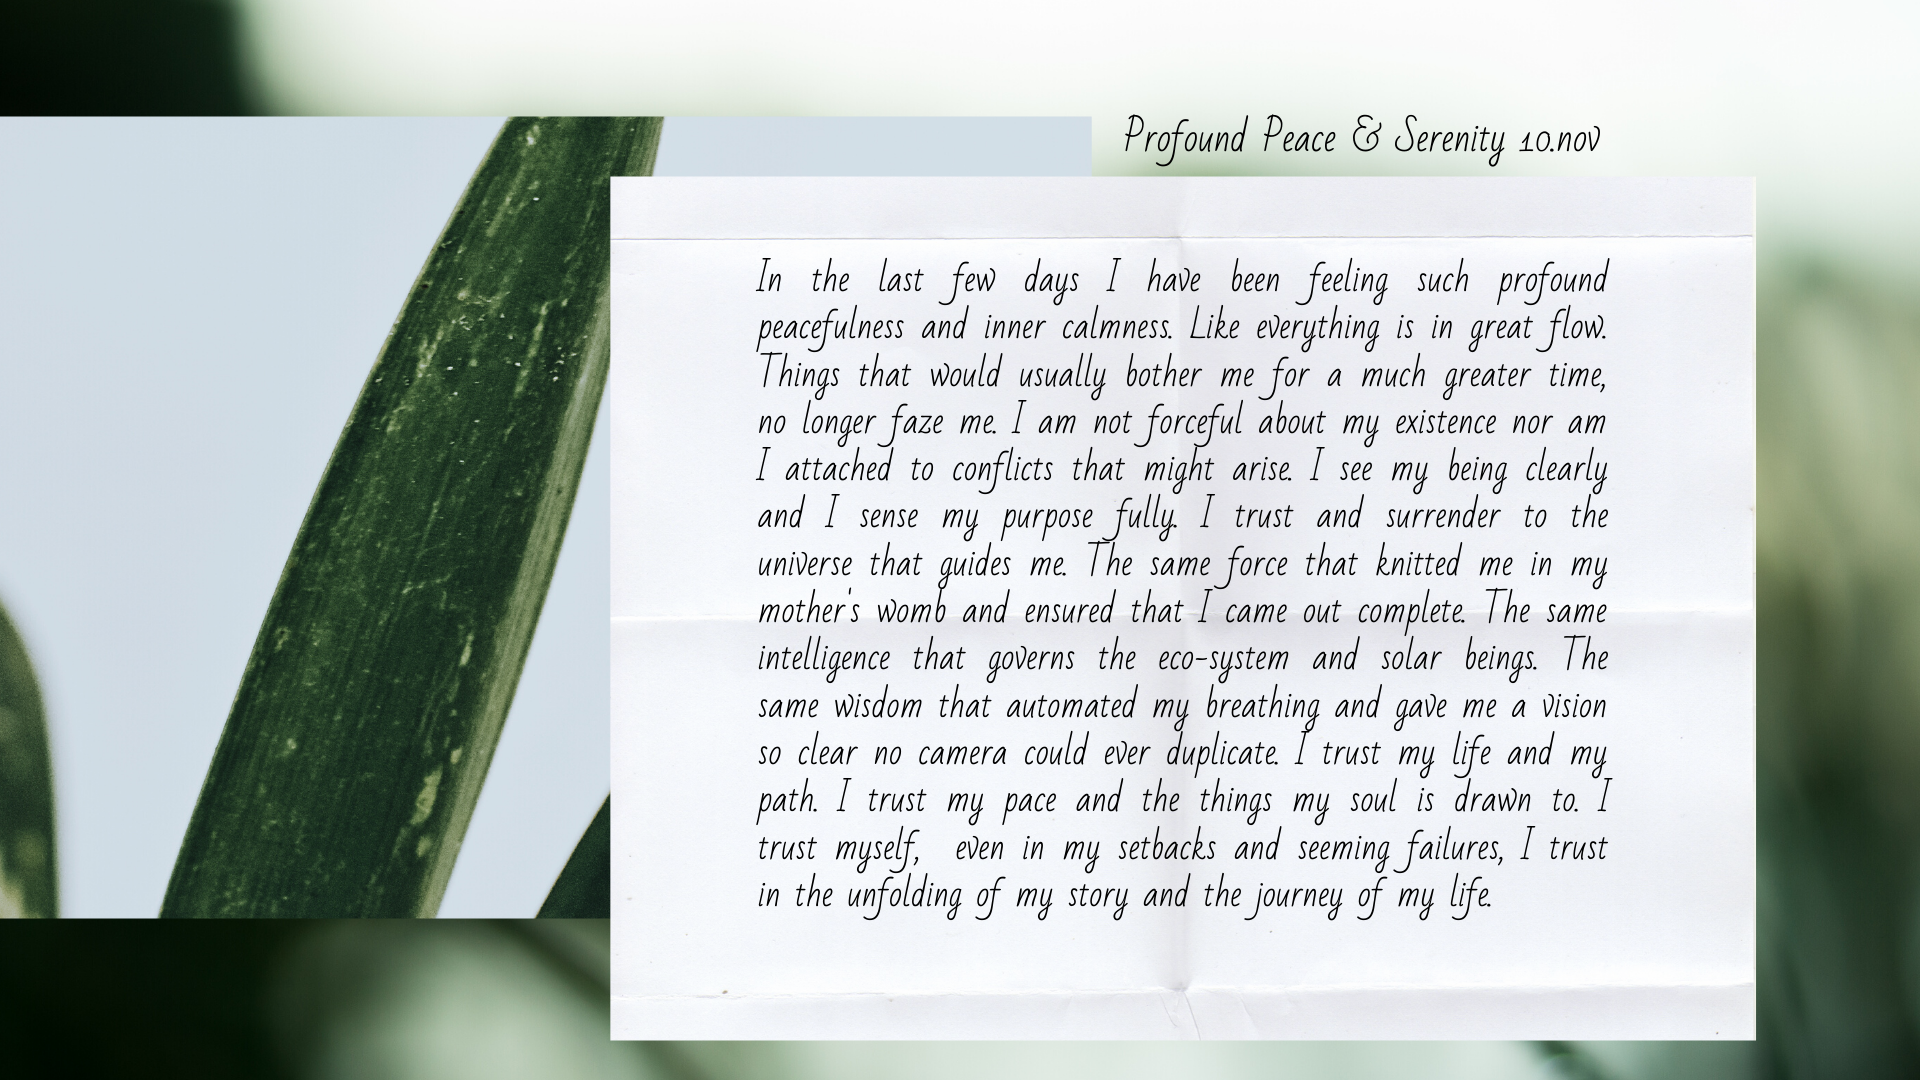 Profound Peace & Serenity 10.nov
In the last few days I have been feeling such profound
peacefulness and inner calmness. Like everything is in great flow.
Things that would usually bother me for a much greater time,
no longer faze me. I am not forceful about my existence nor am
I attached to conflicts that might arise. I see my being clearly
and I sense my purpose fully. I trust and surrender to the
universe that guides me. The same force that knitted me in my
mother's womb and ensured that I came out complete. The same
intelligence that governs the eco-system and solar beings. The
same wisdom that automated my breathing and gave me a vision
so clear no camera could ever duplicate. I trust my life and my
path. I trust my pace and the things my soul is drawn to. I
trust myself, even in my setbacks and seeming failures, I trust
in the unfolding of my story and the journey of my life.